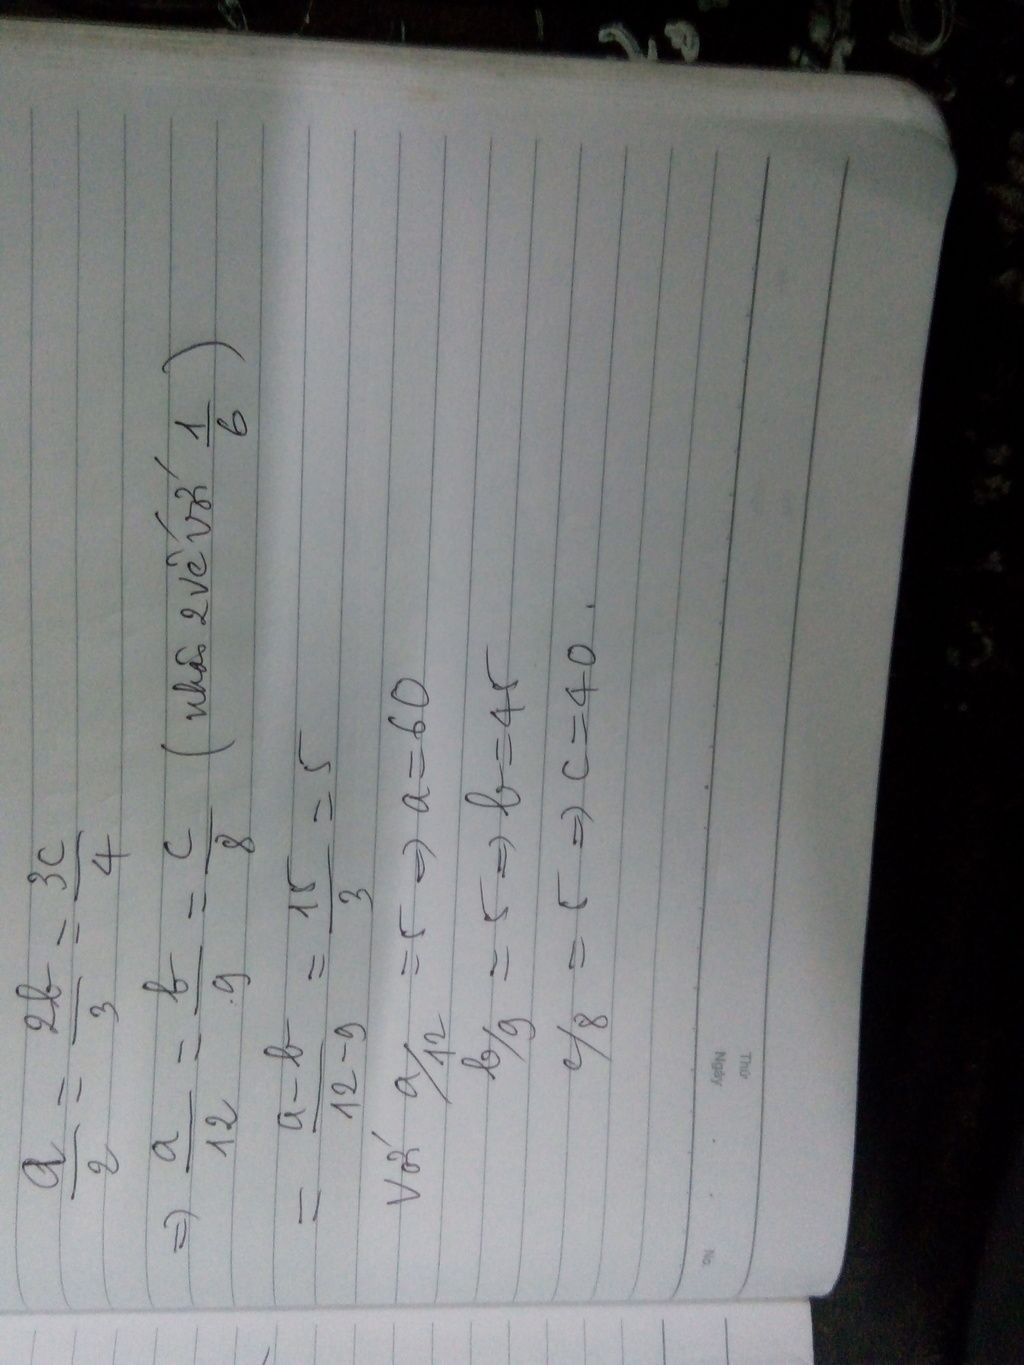 a/2 = 2b/3 = 3c/4
=> a/12 = b/9 = c/8 (nhân 2 vế với 1/6)
= a-b/12-9 = 15/3 = 5
Với a/12 = 5 => a = 60
b/9 = 5 => b = 45
c/8 = 5 => c = 40.
Thứ
Ngày
No.